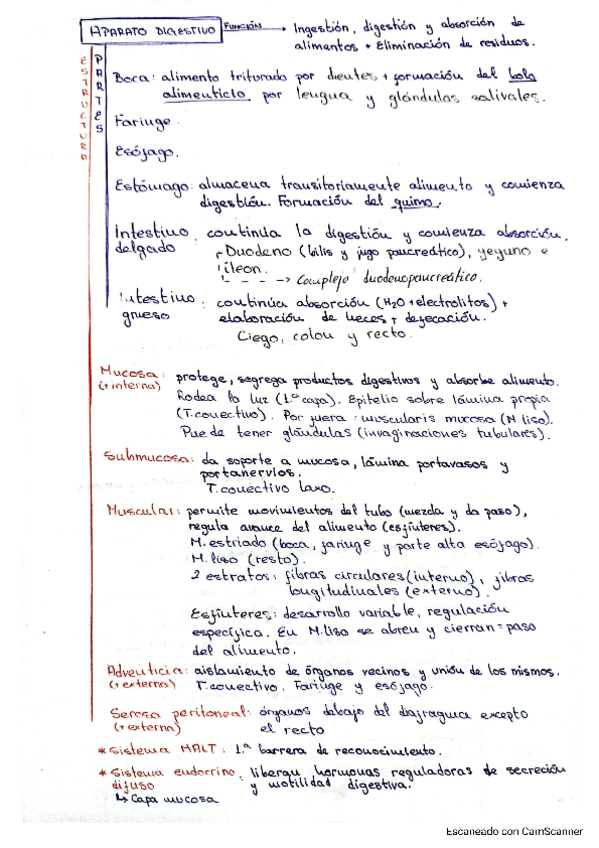 APARATO DIGESTIVO FUNCIÓN → Ingestión, digestión y absorción de
alimentos + Eliminación de residuos.
ESTRUCTURA
PARTES
Boca: alimento triturado por dientes + formación del bolo
alimenticio por lengua y glándulas salivales.
Faringe
Esófago.
Estómago: almacena transitoriamente alimento y comienza
digestión. Formación del quimo.
Intestino delgado: continúa la digestión y comienza absorción.
Duodeno (bilis y jugo pancreático), yeyuno e
íleon.
→ Complejo duodenopancreático.
Intestino grueso: continúa absorción (H2O + electrolitos) +
elaboración de heces + defecación.
Ciego, colon y recto.
Mucosa: protege, segrega productos digestivos y absorbe alimento.
(+ interna) Rodea la luz (1.ª capa). Epitelio sobre lámina propia
(T.conectivo). Por fuera: muscularis mucosa (M.liso).
Puede tener glándulas (invaginaciones tubulares).
Submucosa: da soporte a mucosa, lámina portavasos y
portanervios.
T.conectivo laxo.
Muscular: permite movimientos del tubo (mezcla y da paso),
regula avance del alimento (esfínteres).
M.estriado (boca, faringe y parte alta esófago).
M.liso (resto).
2 estratos: fibras circulares (interno), fibras
longitudinales (externo).
Esfínteres: desarrollo variable, regulación
específica. En M.liso se abren y cierran = paso
del alimento.
Adventicia: aislamiento de órganos vecinos y unión de los mismos.
(+ externa) T.conectivo. Faringe y esófago.
Serosa peritoneal: órganos debajo del diafragma excepto
(+ externa) el recto
* Sistema MALT: 1.ª barrera de reconocimiento.
* Sistema endocrino difuso, liberan hormonas reguladoras de secreción
y motilidad digestiva.
↳ Capa mucosa
Escaneado con CamScanner